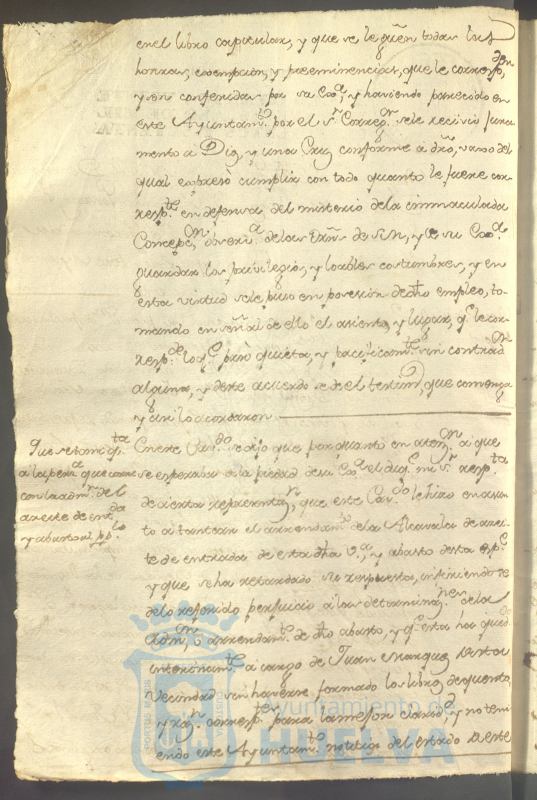 en el libro capitular, y que se le guñ todas las
honras, exempcion, y preeminencias, que le corresp.den
y son conferidas por su Exª, y haviendo parecido en
este Ayuntam.to por el s.r Correg.r se le recivió jura
mento a Dios, y una Cruz conforme a dro, vaxo del
qual expresó cumplir con todo quanto le fuere cor
resp.te en defensa del misterio de la inmaculada
Concepc.on, de las de S.M, y de su Exª
guardar los privilegios, y loables costumbres, y en
esta virtud se le puso en posesion de dho empleo, to
mando en señal de ello el asiento, y lugar, q.e le cor
resp.de lo q.e pasó quieta, y pacificam.te sin contrad.on
alguna, y deste acuerdo se dé el testim.o, que convenga
y asi lo acordaron
Que se tome q.ta
a la pers.a que corre
con la adm.on del
aceite de ent.da
y abasto al pp.lo
En este Cav.do se dijo que por quanto en aten.on a que
se esperaba de la piedad de su Exª el mi s.r resp.ta
de cierta represent.n, que este Cav.do le hizo en asun
to a tantear el arrendam.to de la Alcavala de acei
te de entrada de esta dha V.ª, y abasto desta esp.e
y que se ha retardado su respuesta, infiriendose
de lo referido perjuicio a las determina.nes de la
Adm.on, o arrendam.to de dho abasto, y q.e esta ha qued.do
interinam.te a cargo de Juan Marquez desta
Vecindad sin haverse formado los libros de quenta,
y raz.n corresp.tes para la mejor clarid.d, y no teni
endo este Ayuntam.to noticia del estado deste
Ayuntamiento de
HUELVA